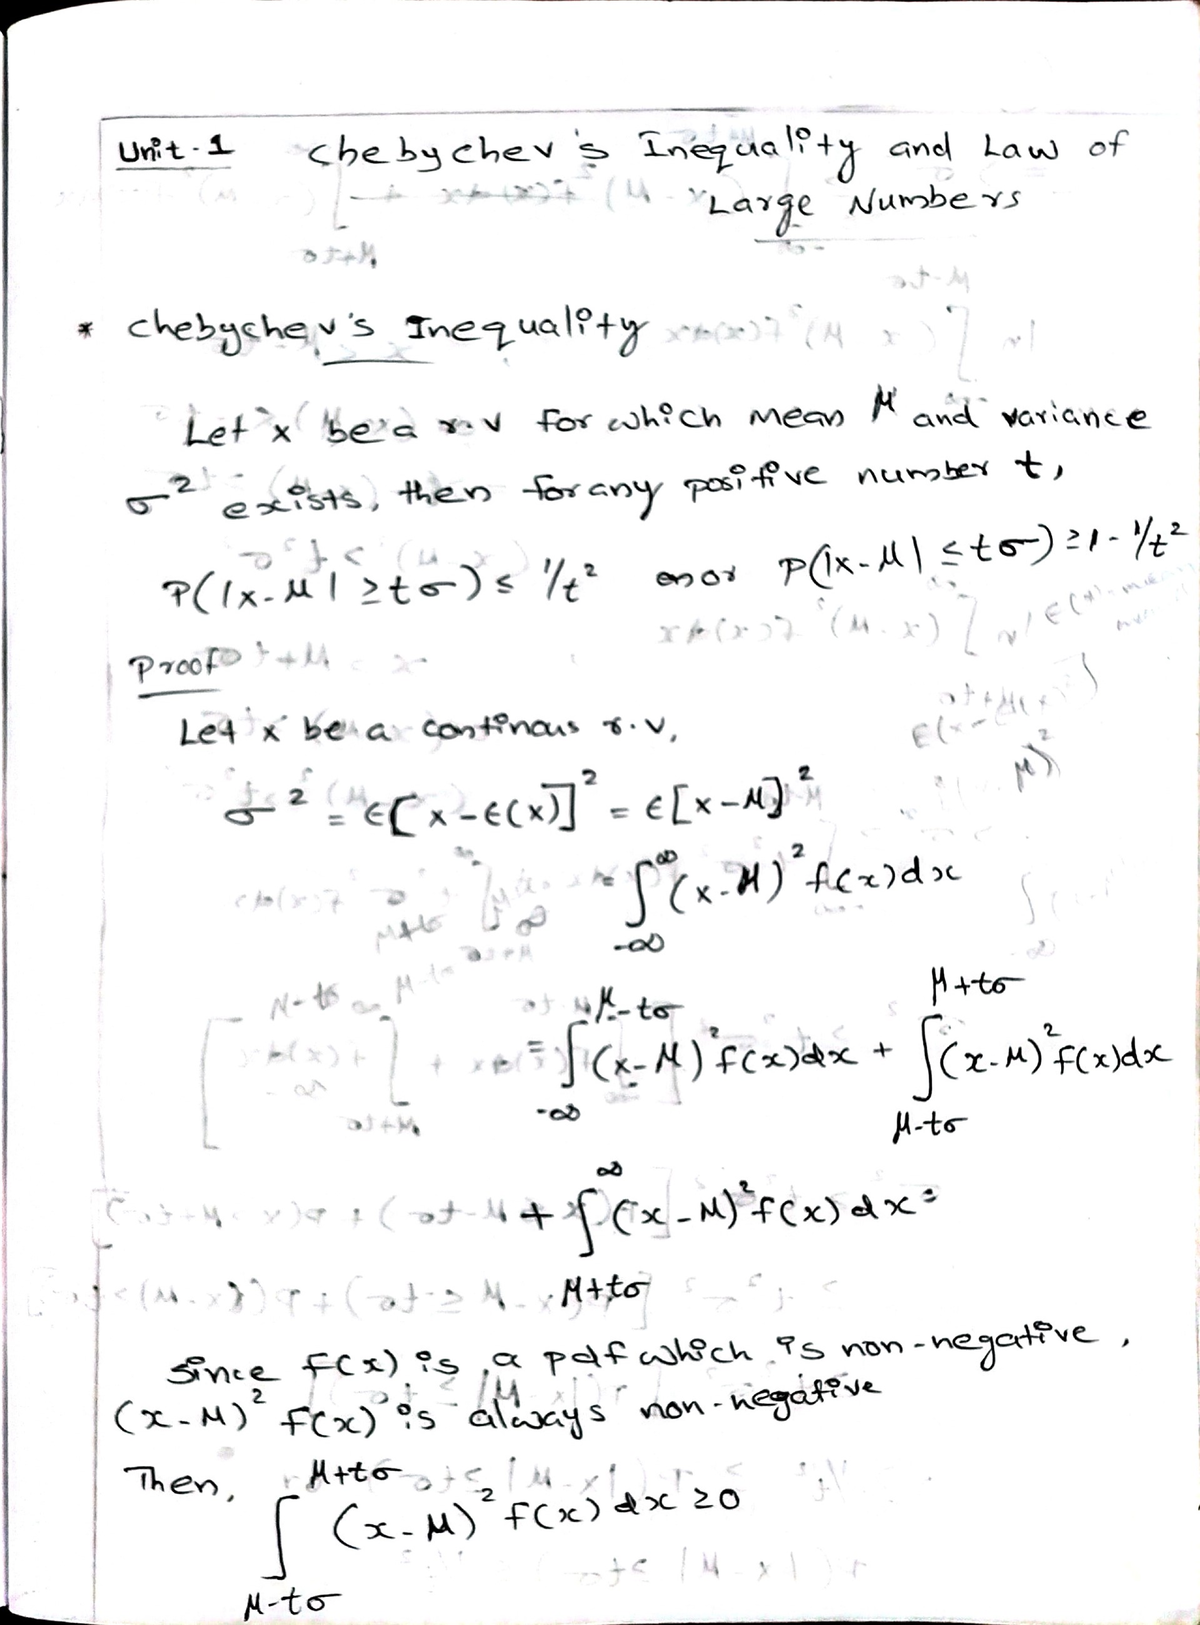 Unit-1 Chebychev's Inequality and Law of
Large Numbers
* Chebychev's Inequality
Let x be a r.v for which mean μ and variance
σ² exists, then for any positive number t,
P(|x-μ| ≥ tσ) ≤ 1/t² or P(|x-μ| ≤ tσ) ≥ 1 - 1/t²
Proof
Let x be a continous r.v,
σ² = E[x-E(x)]² = E[x-μ]²
= ∫_{-∞}^{∞} (x-μ)² f(x)dx
= ∫_{-∞}^{μ-tσ} (x-μ)² f(x)dx + ∫_{μ-tσ}^{μ+tσ} (x-μ)² f(x)dx
+ ∫_{μ+tσ}^{∞} (x-μ)² f(x) dx =
Since f(x) is a pdf which is non-negative,
(x-μ)² f(x) is always non-negative
Then, ∫_{μ-tσ}^{μ+tσ} (x-μ)² f(x) dx ≥ 0